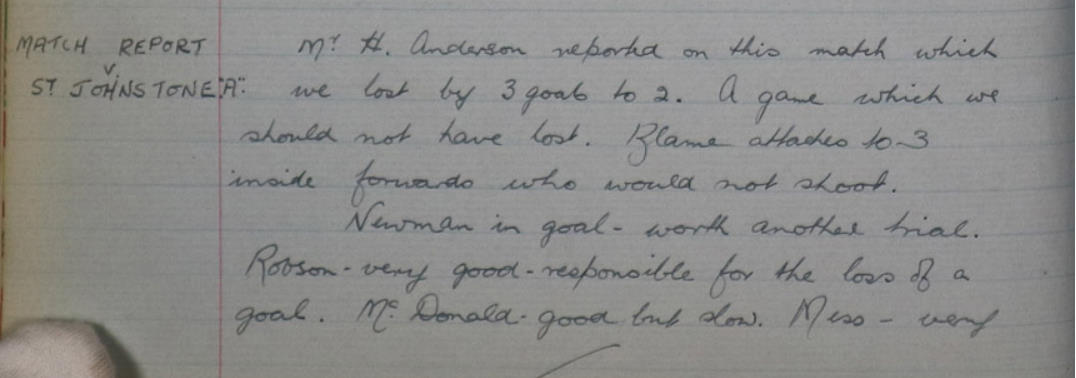 MATCH REPORT Mr H. Anderson reported on this match which
ST JOHNSTONE "A". we lost by 3 goals to 2. A game which we
should not have lost. Blame attaches to 3
inside forwards who would not shoot.
Newman in goal - worth another trial.
Robson - very good - responsible for the loss of a
goal. McDonald - good but slow. Miso - very